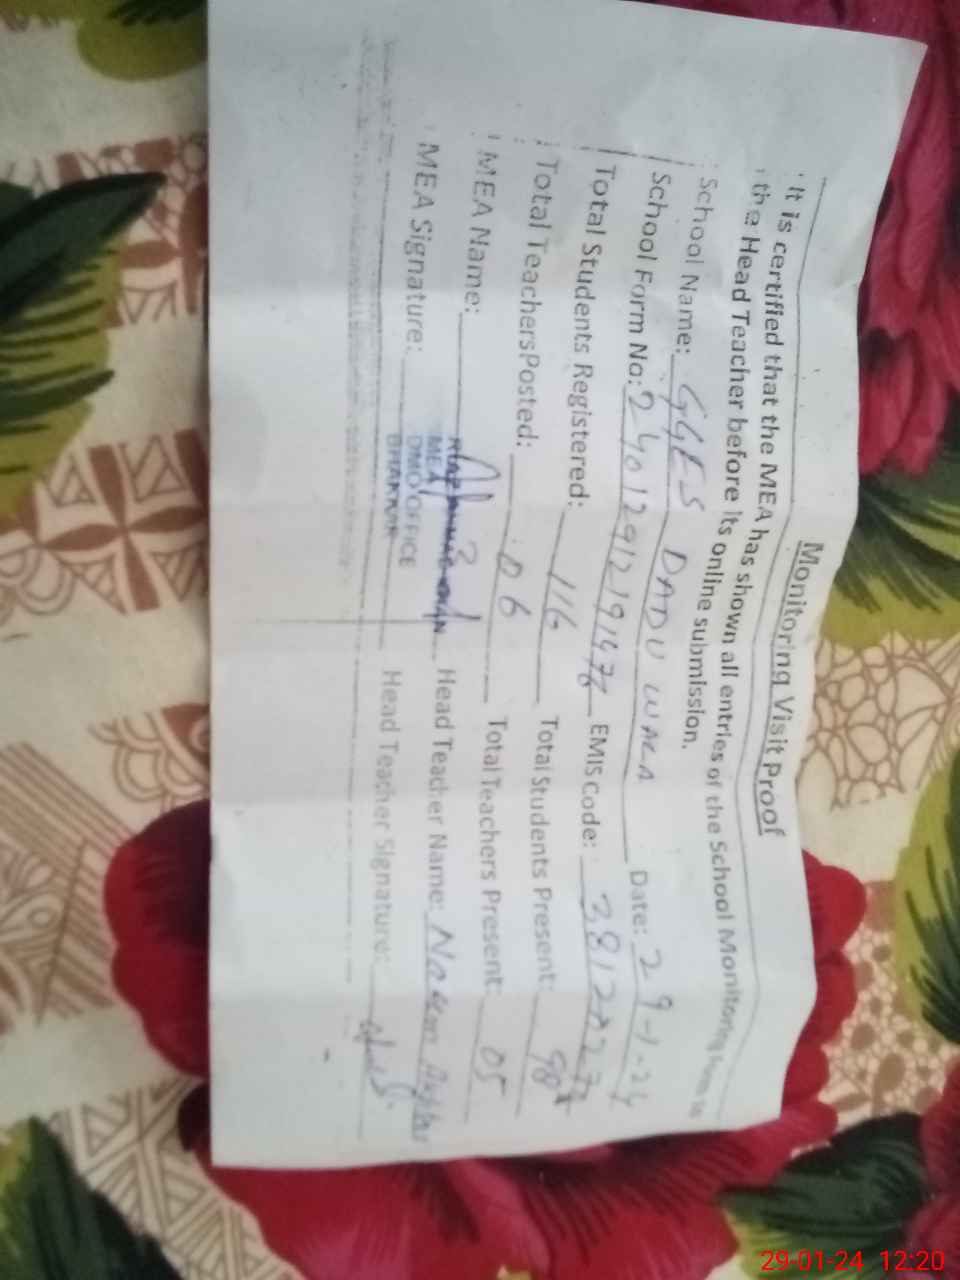 Monitoring Visit Proof
It is certified that the MEA has shown all entries of the School Monitoring Form to
the Head Teacher before its online submission.
School Name: GGES DADU WALA Date: 29-1-24
School Form No: EMIS Code:
Total Students Registered: 116 Total Students Present: 98
Total TeachersPosted: 06 Total Teachers Present: 05
MEA Name: Head Teacher Name:
MEA
DMO OFFICE
BHAKKAR
MEA Signature: Head Teacher Signature:
29-01-24 12:20